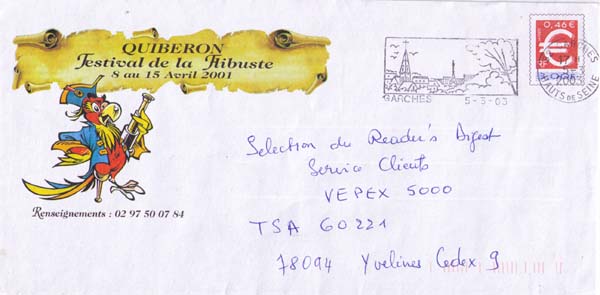 QUIBERON
Festival de la Flibuste
8 au 15 Avril 2001
Renseignements : 02 97 50 07 84
GARCHES 5-3-03
0,46 €
RF
3,00F
HAUTS DE SEINE
Selection du Reader's Digest
Service Clients
VEPEX 5000
TSA 60221
78094 Yvelines Cedex 9